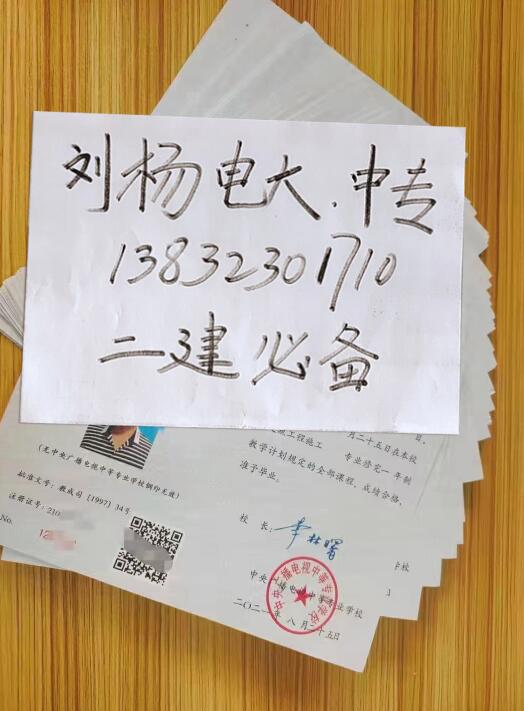 刘杨电大.中专
13832301710
二建必备
月二十五日在本校
工程施工
专业修完一年制
教学计划规定的全部课程，成绩合格，
准予毕业。
(无中央广播电视中等专业学校钢印无效)
批准文号：教成司［1997］34号
注册证号：210
No.
校长：
李林曙
中央广播电视中等专业学校
二〇二一年八月二十五日